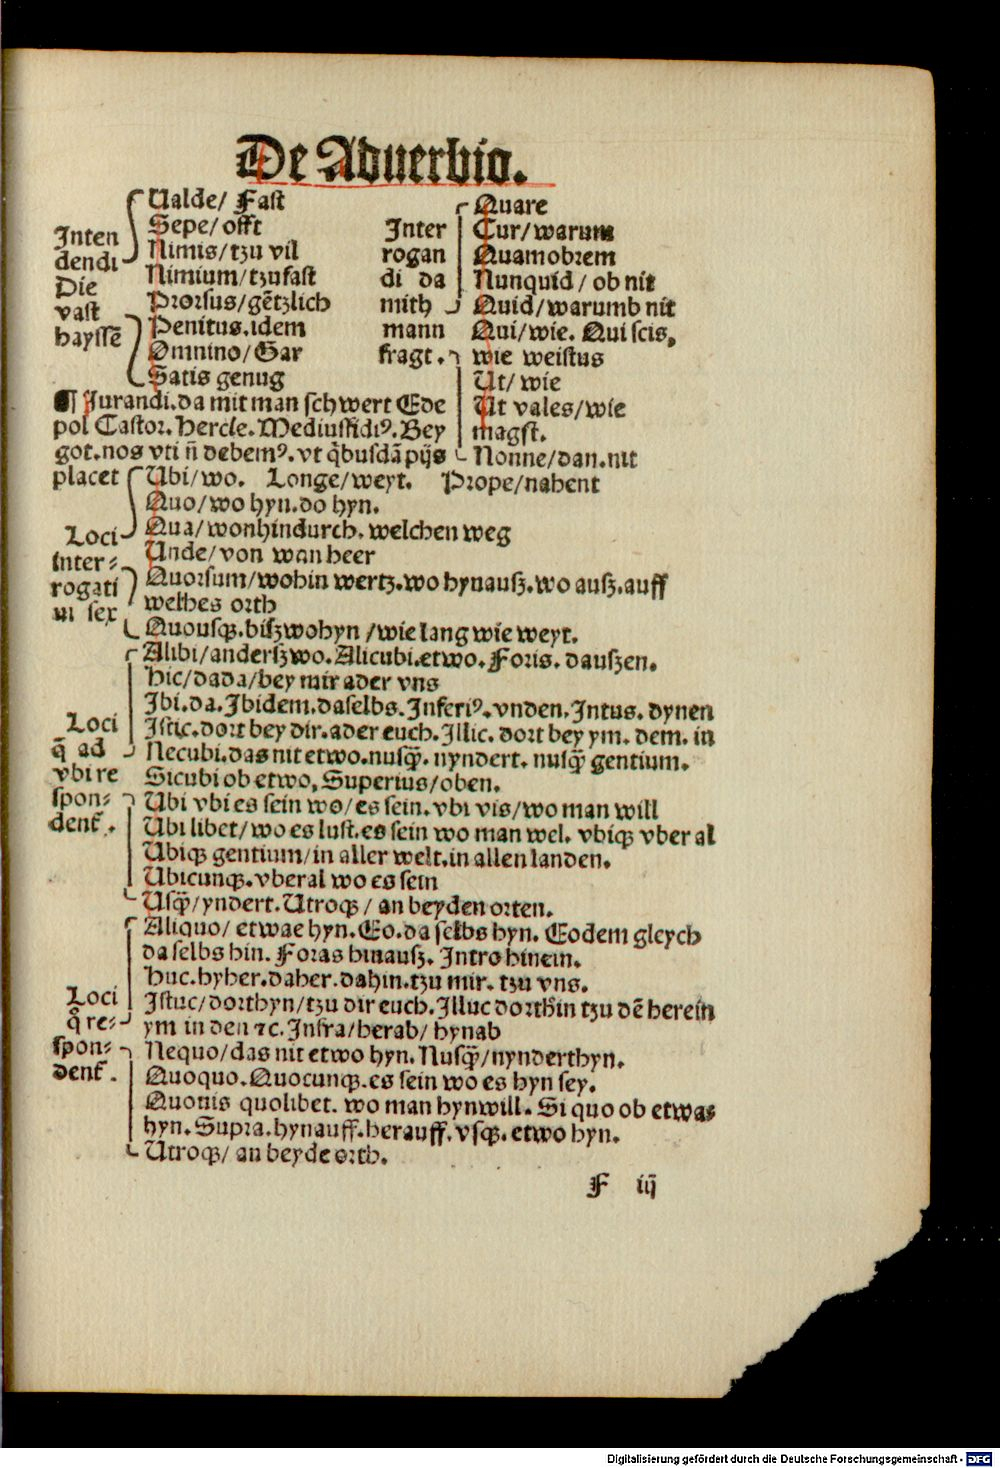 De Aduerbio.
Inten
dendi
Die
vast
hayssē
Ualde/ Fast
Sepe/ offt
Nimis/tzu vil
Nimium/tzufast
Prorsus/gētzlich
Penitus.idem
Omnino/Gar
Satis genug
Inter
rogan
di da
mith
mann
fragt.
Quare
Cur/warum
Quamobrem
Nunquid/ ob nit
Quid/warumb nit
Qui/wie. Qui scis,
wie weistus
Ut/ wie
Ut vales/wie
magst.
Nonne/dan.nit
¶ Jurandi.da mit man schwert Ede
pol Castor. Hercle. Mediussidiꝰ. Bey
got.nos vti n̄ debemꝰ.vt q̄busdā pijs
placet
Ubi/wo. Longe/weyt. Prope/nahent
Loci
inter⸗
rogati
ui sex
Quo/wo hyn.do hyn.
Qua/wonhindurch. welchen weg
Unde/von wan heer
Quorsum/wohin wertz.wo hynausz.wo ausz.auff
welhes orth
Quousqꝫ.biszwohyn /wie lang wie weyt.
Loci
q̄ ad
vbi re
spon⸗
dent̄.
Alibi/anderszwo. Alicubi.etwo. Foris. dauszen.
Hic/dada/bey mir ader vns
Ibi.da. Ibidem.daselbs. Inferiꝰ.vnden. Intus. dynen
Istic.dort bey dir.ader euch. Illic. dort bey ym. dem. in
Necubi.das nit etwo.nusqꝫ̄. nyndert. nusqꝫ̄ gentium.
Sicubi ob etwo, Superius/oben.
Ubi vbi es sein wo/es sein. vbi vis/wo man will
Ubi libet/wo es lust.es sein wo man wel. vbiqꝫ vber al
Ubiqꝫ gentium/in aller welt.in allen landen.
Ubicunqꝫ.vberal wo es sein
Usqꝫ̄/yndert. Utroqꝫ/ an beyden orten.
Loci
q̊ re⸗
spon⸗
dent̄.
Aliquo/ etwae hyn. Eo.da selbs hyn. Eodem gleych
da selbs hin. Foras hinausz. Intro hinein.
Huc.hyher.daher.dahin.tzu mir. tzu vns.
Istuc/dorthyn/tzu dir euch. Illuc dorthin tzu dē herein
ym in den ⁊c. Infra/herab/ hynab
Nequo/das nit etwo hyn. Nusqꝫ̄/nynderthyn.
Quoquo. Quocunqꝫ.es sein wo es hyn sey.
Quouis quolibet. wo man hynwill. Si quo ob etwas
hyn. Supra.hynauff.herauff.vsqꝫ. etwo hyn.
Utroqꝫ/ an beyde orth.
F iij
Digitalisierung gefördert durch die Deutsche Forschungsgemeinschaft - DFG